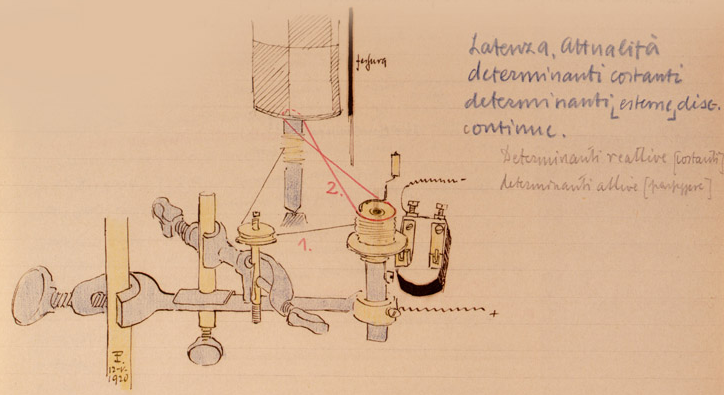 Latenza, Attualità
determinanti costanti
determinanti [esterne] disc.
continue.
Determinanti reattive [costanti]
determinanti attive [passeggere]
fessura
2.
1.
+
1920